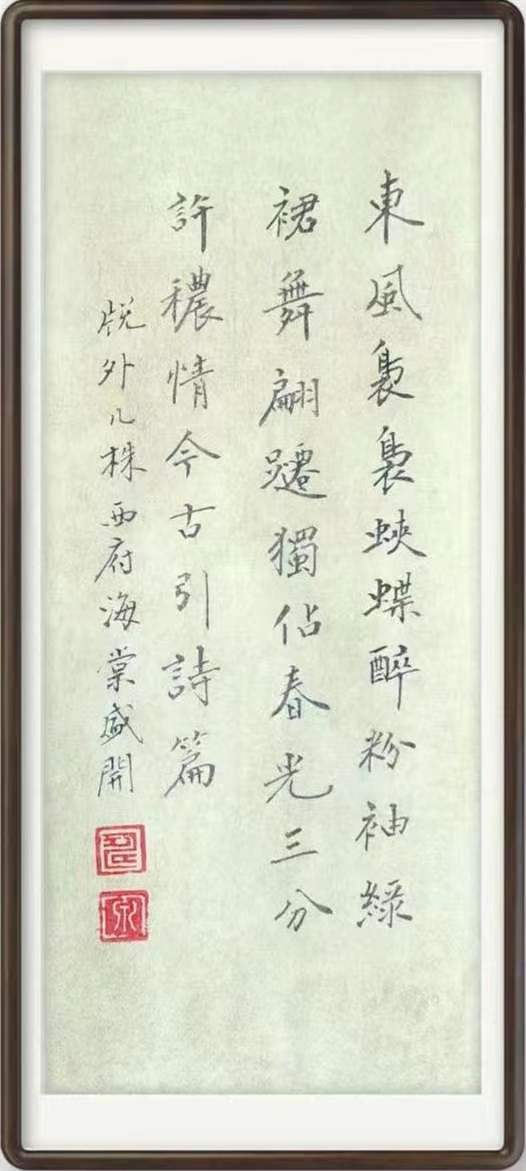 東風裊裊蛺蝶醉粉袖綠
裙舞翩躚獨佔春光三分
許穠情今古引詩篇
外几株西府海棠盛開